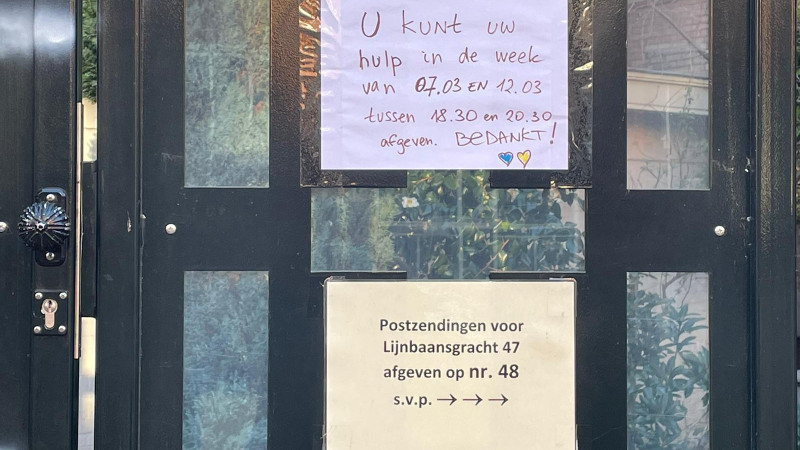 U kunt uw
hulp in de week
van 07.03 EN 12.03
tussen 18.30 en 20.30
afgeven. BEDANKT!
Postzendingen voor
Lijnbaansgracht 47
afgeven op nr. 48
s.v.p. → → →